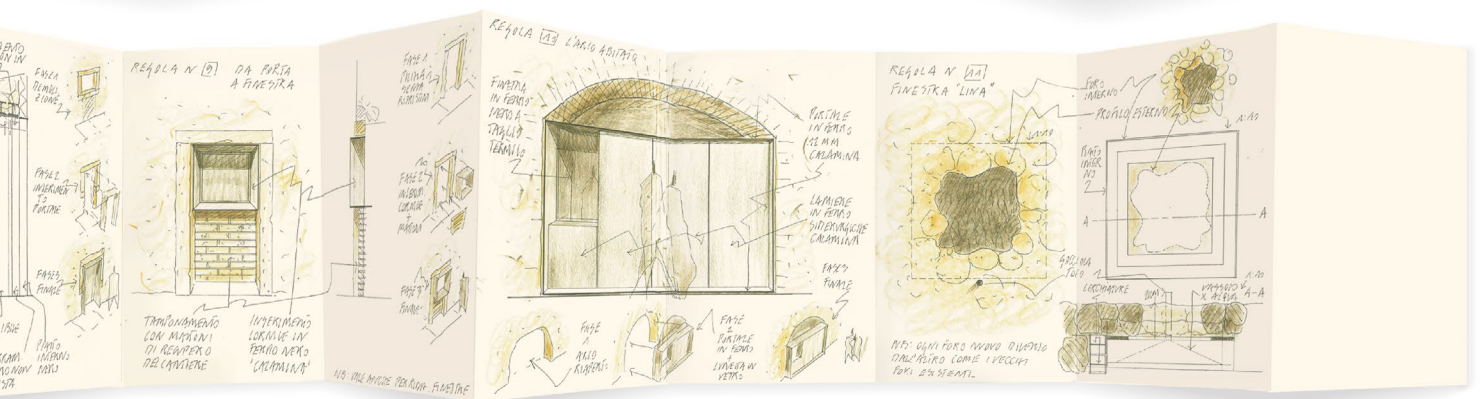 FASE 1
DEMOLI
ZIONE
FASE 2
INSERIMEN
TO
PORTALE
FASE 3
FINALE
PIATTO
INTERNO
REGOLA N 9 DA PORTA
A FINESTRA
TAMPONAMENTO
CON MATTONI
DI RECUPERO
DEL CANTIERE
INSERIMENTO
CORNICE IN
FERRO NERO
"CALAMINA"
FASE 1
PRIMA
SENZA
FASE 2
CORNICE
+
MATTONI
FASE 3
FINALE
NB VALE ANCHE PER NUOVA FINESTRE
REGOLA 13 L'ARCO ABITATO
FINESTRA
IN FERRO
NERO A
TAGLIO
TERMICO
PORTALE
IN FERRO
12 MM
CALAMINA
LAMIERE
IN FERRO
SIDERURGICHE
CALAMINA
FASE
1
ARCO
RIAPERTO
FASE
2
PORTALE
IN FERRO
+
LUNETTA IN
VETRO
FASE 3
FINALE
REGOLA N 11
FINESTRA "LINA"
NB: OGNI FORO NUOVO DIVERSO
DALL'ALTRO COME I VECCHI
FORI ESISTENTI
FORO
INTERNO
PROFILO ESTERNO
1:10
PIATTO
INTER
NO
A
A
GOCCIOLA
TOIO
CERCHIATURE
1:10
A-A